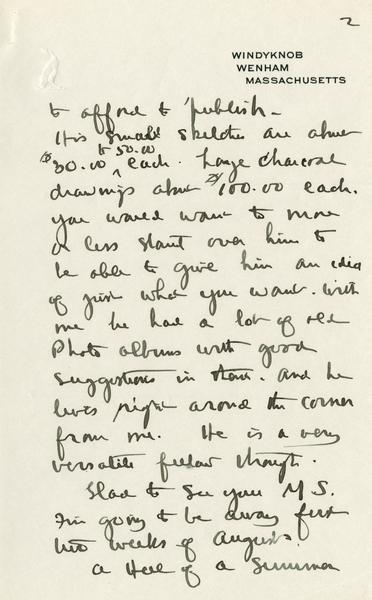 2
WINDYKNOB
WENHAM
MASSACHUSETTS
to afford to publish –
His small sketches are about
$30.00 to 50.00 each. Large Charcoal
drawings about $100.00 each.
you would want to more
or less stand over him to
be able to give him an idea
of just what you want. With
me he had a lot of old
Photo albums with good
suggestions in them. And he
lives right around the corner
from me. He is a very
versatile fellow though.
Glad to see you M S.
I'm going to be away first
two weeks of August.
a Hell of a Summer